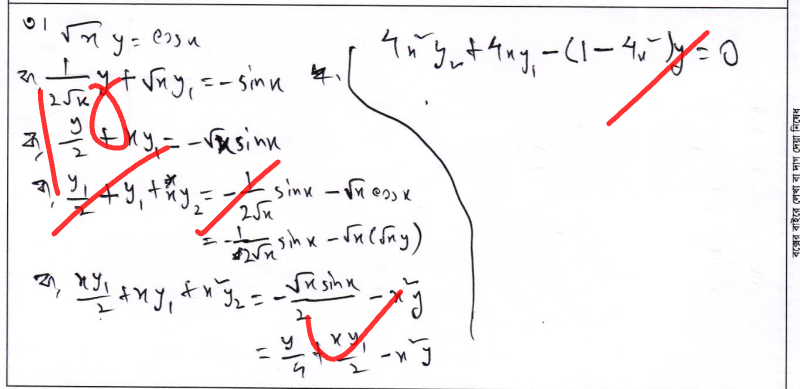 ৩।
√x y = cosx
বা, 1/(2√x) y + √x y₁ = -sinx
বা, y/2 + xy₁ = -√x sinx
বা, y₁/2 + y₁ + xy₂ = -1/(2√x) sinx - √x cosx
= -1/(2√x) sinx - √x(√x y)
বা, xy₁/2 + xy₁ + x²y₂ = -(√x sinx)/2 - x²y
= y/4 + xy₁/2 - x²y
4x²y₂ + 4xy₁ - (1 - 4x²)y = 0
বক্সের বাইরে লেখা বা দাগ দেয়া নিষেধ